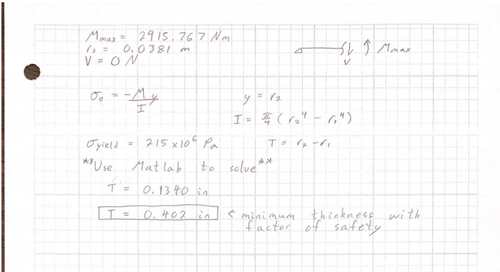 Mmax = 2915.767 Nm
r2 = 0.0381 m
V = 0 N
V Mmax
σo = -My/I
y = r2
I = π/4 (r2^4 - r1^4)
σyield = 215 x10^6 Pa
T = r2 - r1
**Use Matlab to solve**
T = 0.1340 in
T = 0.402 in < minimum thickness with
factor of safety